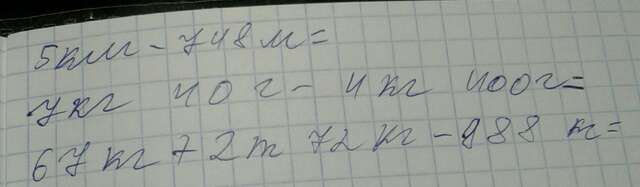 5км - 748м=
7кг 40г - 4кг 400г=
67кг + 2т 72кг - 988 кг=